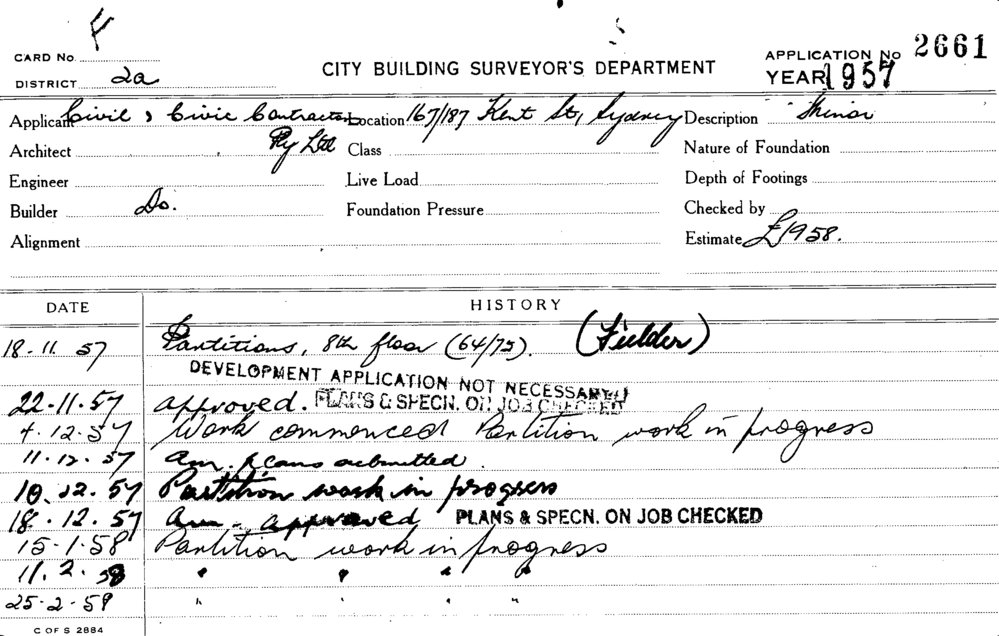 F
CARD No.
DISTRICT 2a
CITY BUILDING SURVEYOR'S DEPARTMENT
APPLICATION No 2661
YEAR 1957
Applicant Civil & Civic Contractors Location 167/187 Kent St, Sydney Description Minor
Architect Pty Ltd Class Nature of Foundation
Engineer Live Load Depth of Footings
Builder Do. Foundation Pressure Checked by
Alignment Estimate £1958.
DATE HISTORY
18-11 57 Partitions, 8th floor (64/75). (Fielder)
DEVELOPMENT APPLICATION NOT NECESSARY
22-11-57 approved. PLANS & SPECN. ON JOB CHECKED
4-12-57 Work commenced Partition work in progress
11-12-57 Am. plans submitted.
10.12.57 Partition work in progress
18.12.57 Am. approved PLANS & SPECN. ON JOB CHECKED
15-1-58 Partition work in progress
11.2.58 " " " "
25-2-58 " " " "
C OF S 2884